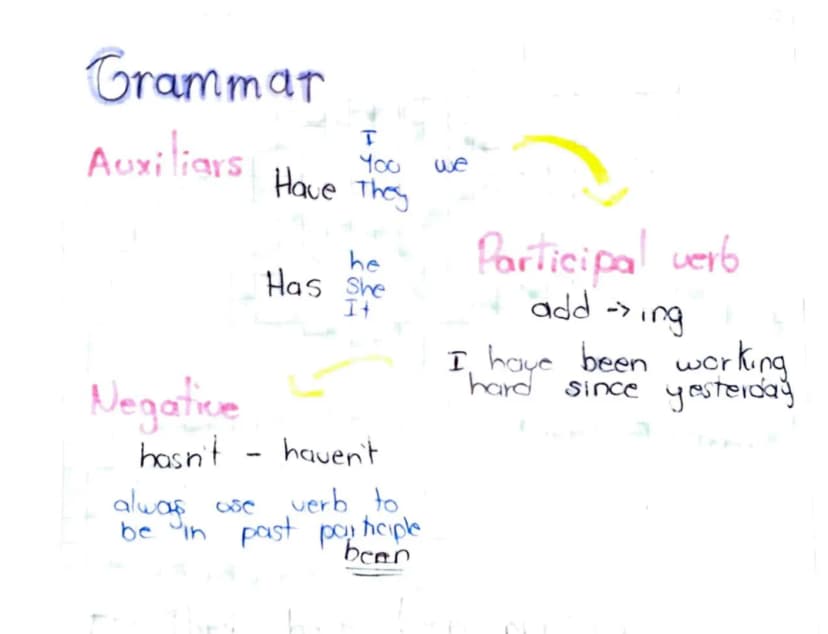 Grammar
Auxiliars
I
You we
Have They
he
Has She
It
Participal verb
add -> ing
I have been working
hard since yesterday
Negative
hasn't - haven't
always use verb to
be in past participle
been